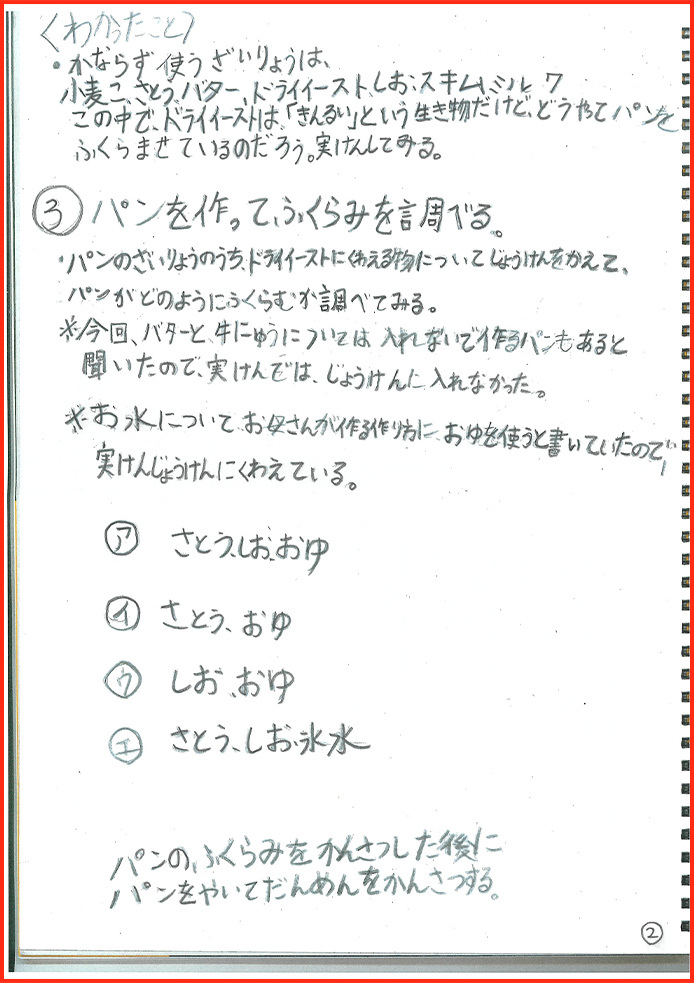 〈わかったこと〉
・かならず使うざいりょうは、
小麦こ、さとう、バター、ドライイースト、しお、スキムミルク
この中で、ドライイーストは、「きんるい」という生き物だけど、どうやてパンを
ふくらませているのだろう。実けんしてみる。
③ パンを作って、ふくらみを調べる。
・パンのざいりょうのうち、ドライイーストにくわえる物についてじょうけんをかえて、
パンがどのようにふくらむか調べてみる。
※今回、バターと、牛にゅうについては入れないで作るパンもあると
聞いたので、実けんでは、じょうけんに入れなかった。
※お水についてお母さんが作る作り方に、おゆを使うと書いていたので、
実けんじょうけんにくわえている。
㋐ さとう、しお、おゆ
㋑ さとう、おゆ
㋒ しお、おゆ
㋓ さとう、しお、氷水
パンの、ふくらみをかんさつした後に
パンをやいてだんめんをかんさつする。
②